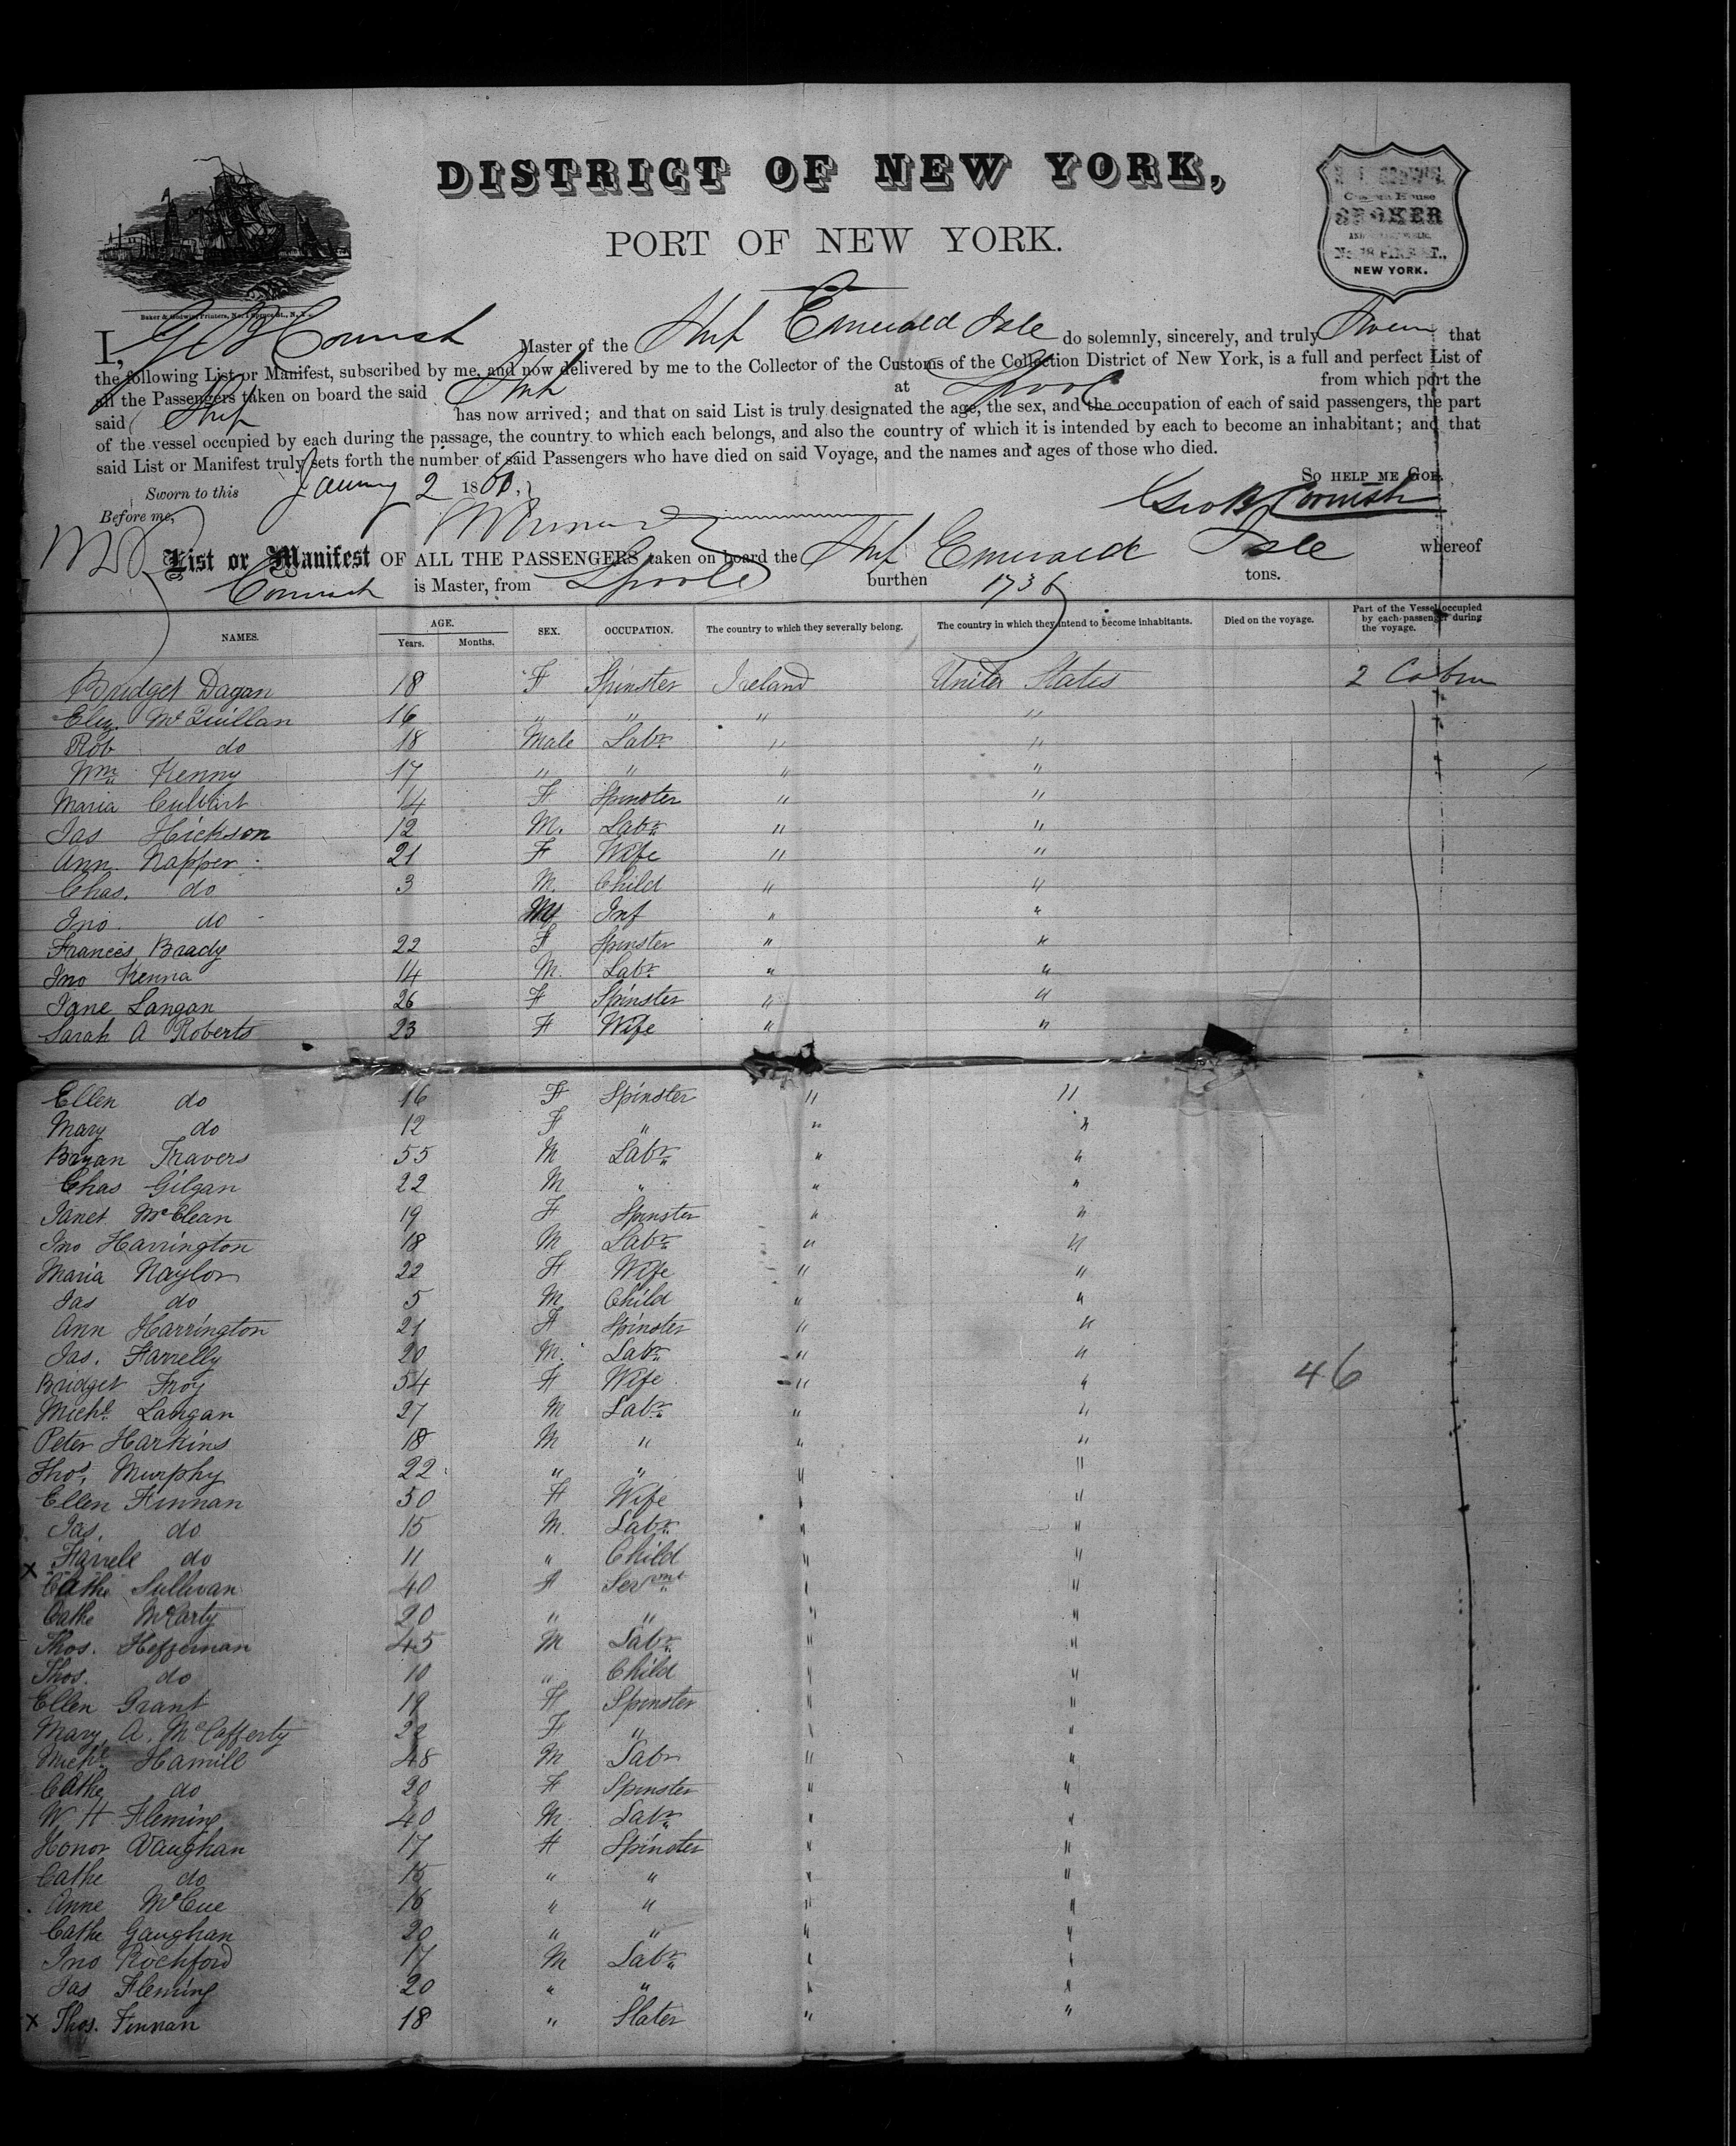 DISTRICT OF NEW YORK,
PORT OF NEW YORK.
Custom House
BROKER
NEW YORK.
Baker & Godwin, Printers, No. 1 Spruce St., N. Y.
I, Geo B Cornish Master of the Ship Emerald Isle do solemnly, sincerely, and truly Swear that
the following List or Manifest, subscribed by me, and now delivered by me to the Collector of the Customs of the Collection District of New York, is a full and perfect List of
all the Passengers taken on board the said Ship at Lpool from which port the
said Ship has now arrived; and that on said List is truly designated the age, the sex, and the occupation of each of said passengers, the part
of the vessel occupied by each during the passage, the country to which each belongs, and also the country of which it is intended by each to become an inhabitant; and that
said List or Manifest truly sets forth the number of said Passengers who have died on said Voyage, and the names and ages of those who died.
Sworn to this January 2 1860. SO HELP ME GOD.
Before me, Geo B Cornish
List or Manifest OF ALL THE PASSENGERS taken on board the Ship Emerald Isle whereof
Cornish is Master, from Lpool burthen 1736 tons.
NAMES. AGE. Years. Months. SEX. OCCUPATION. The country to which they severally belong. The country in which they intend to become inhabitants. Died on the voyage. Part of the Vessel occupied by each passenger during the voyage.
Bridget Dagan 18 F Spinster Ireland United States 2 Cabin
Eliz. McQuillan 16 " " " "
Rob do 18 Male Labr " "
Wm Kenny 17 " " " "
Maria Culbart 14 F Spinster " "
Jas Hickson 12 M. Labr " "
Ann Napper 21 F Wife " "
Chas. do 3 M Child " "
Jno. do M Inf " "
Frances Brady 22 F Spinster " "
Jno Kenna 14 M. Labr " "
Jane Langan 26 F Spinster " "
Sarah A Roberts 23 F Wife " "
Ellen do 16 F Spinster " "
Mary do 12 F " " "
Bryan Travers 55 M Labr " "
Chas Gilgan 22 M " " "
Janet McClean 19 F Spinster " "
Jno Harrington 18 M Labr " "
Maria Naylor 22 F Wife " "
Jas do 5 M Child " "
Ann Harrington 21 F Spinster " "
Jas. Farrelly 20 M. Labr " "
Bridget Froy 54 F Wife " " 46
Michl. Langan 27 M Labr " "
Peter Harkins 18 M " " "
Thos. Murphy 22 " " " "
Ellen Finnan 50 F Wife " "
Jas. do 15 M. Labr " "
x Farrell do 11 " Child " "
Cathe Sullivan 40 F Servant " "
Cathe McCarty 20 " " " "
Thos. Heffernan 45 M Labr " "
Thos. do 10 " Child " "
Ellen Grant 19 F Spinster " "
Mary A. McCafferty 22 F " " "
Michl Hamill 48 M Labr " "
Cathe do 20 F Spinster " "
W H Fleming 40 M. Labr " "
Honor Vaughan 17 F Spinster " "
Cathe do 15 " " " "
Anne McCue 16 " " " "
Cathe Gaughan 20 " " " "
Jno Rochford 17 M Labr " "
Jas Fleming 20 " " " "
x Thos. Finnan 18 " Slater " "